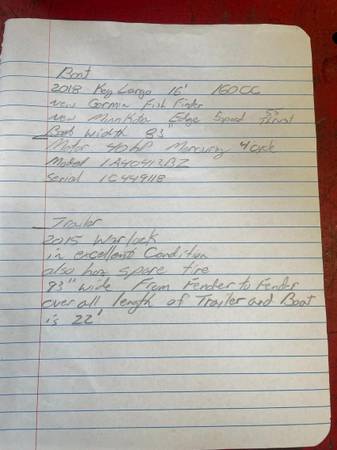 Boat
2018 Key Largo 16' 160CC
new Garmin Fish Finder
new MinnKota Edge 5 speed
Boat width 83"
Motor 40 hp Mercury 4 cycle
Model 1A40413BZ
Serial 1C449118
Trailer
2015 Warlock
in excellent Condition
also has spare tire
93" wide From Fender to Fender
over all length of Trailer and Boat
is 22'